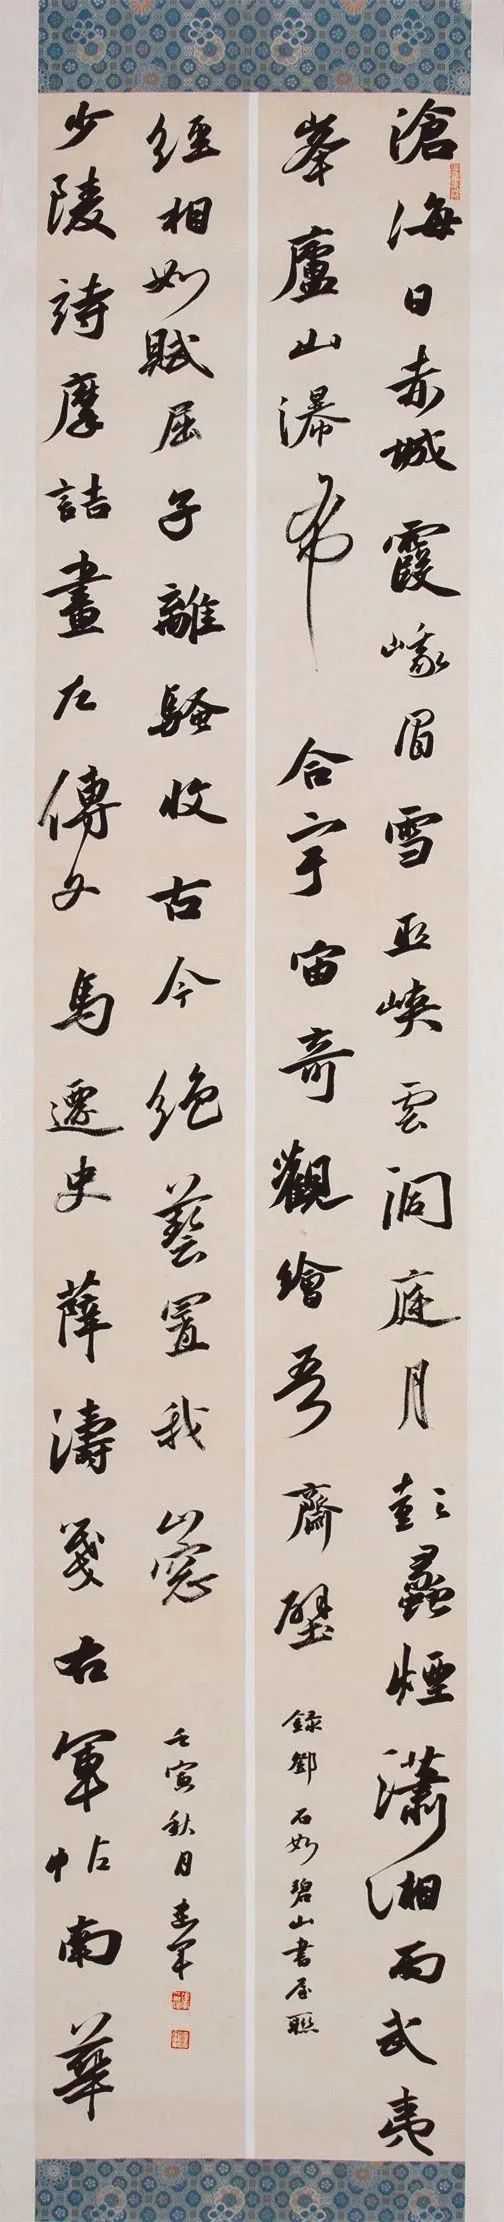 滄海日赤城霞峨眉雪巫峽雲洞庭月彭蠡煙瀟湘雨武夷
峯廬山瀑布合宇宙奇觀繪吾齋壁
錄鄧石如碧山書屋聯
少陵詩摩詰畫左傳文馬遷史薛濤箋右軍帖南華
經相如賦屈子離騷收古今絕藝置我山窓
壬寅秋月建軍